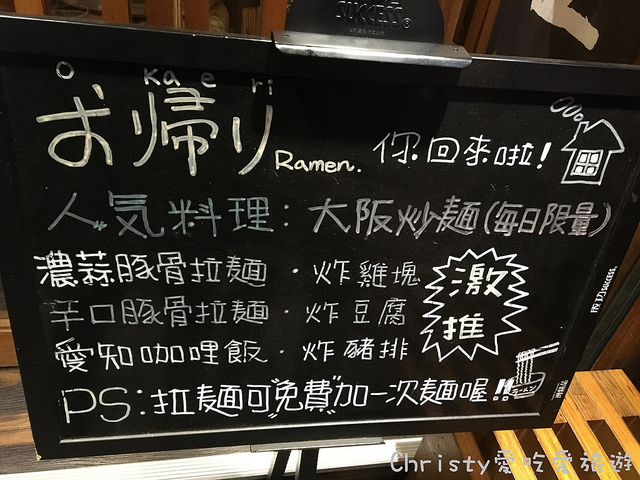 SUCCESS®
o ka e ri
お帰り Ramen. 你回來啦!
人気料理:大阪炒麵(每日限量)
濃蒜豚骨拉麵・炸雞塊
辛口豚骨拉麵・炸豆腐
愛知咖哩飯・炸豬排
激推
PS:拉麵可"免費"加一次麵喔!!
ラーメン
Christy愛吃愛旅遊